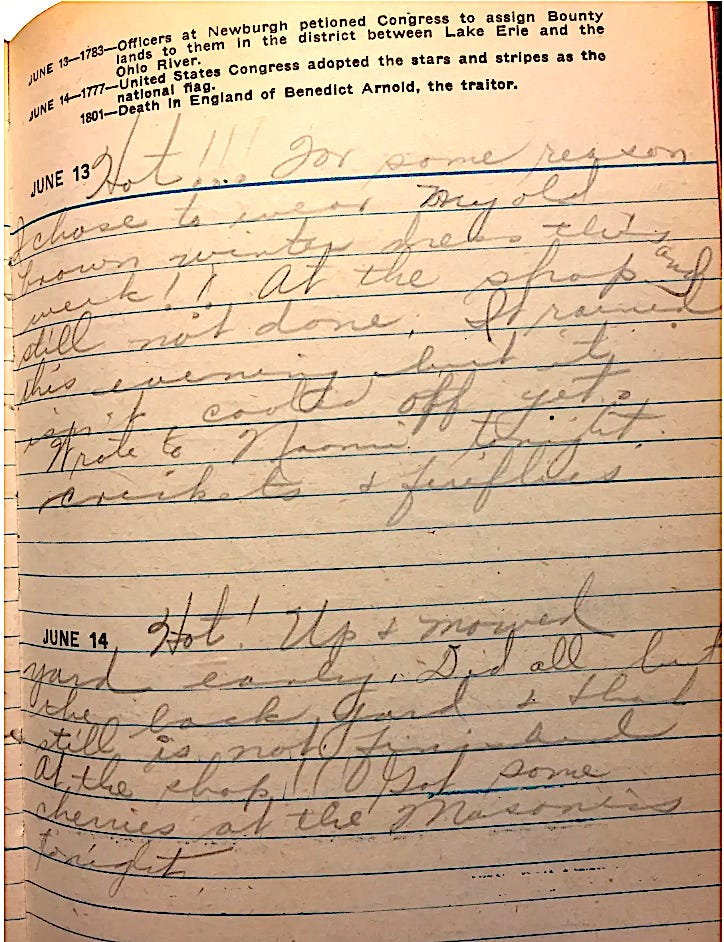 JUNE 13—1783—Officers at Newburgh petioned Congress to assign Bounty
lands to them in the district between Lake Erie and the
Ohio River.
JUNE 14—1777—United States Congress adopted the stars and stripes as the
national flag.
1801—Death in England of Benedict Arnold, the traitor.
JUNE 13 Hot!!! For some reason
I chose to wear my old
brown winter dress this
week!! At the shop and
still not done. It rained
this evening but it
isn't cooled off yet.
Wrote to Naomi tonight.
crickets & fireflies
JUNE 14 Hot! Up & mowed
yard early. Did all but
the back yard & that
still is not finished
At the shop!! Got some
cherries at the Masonics
tonight